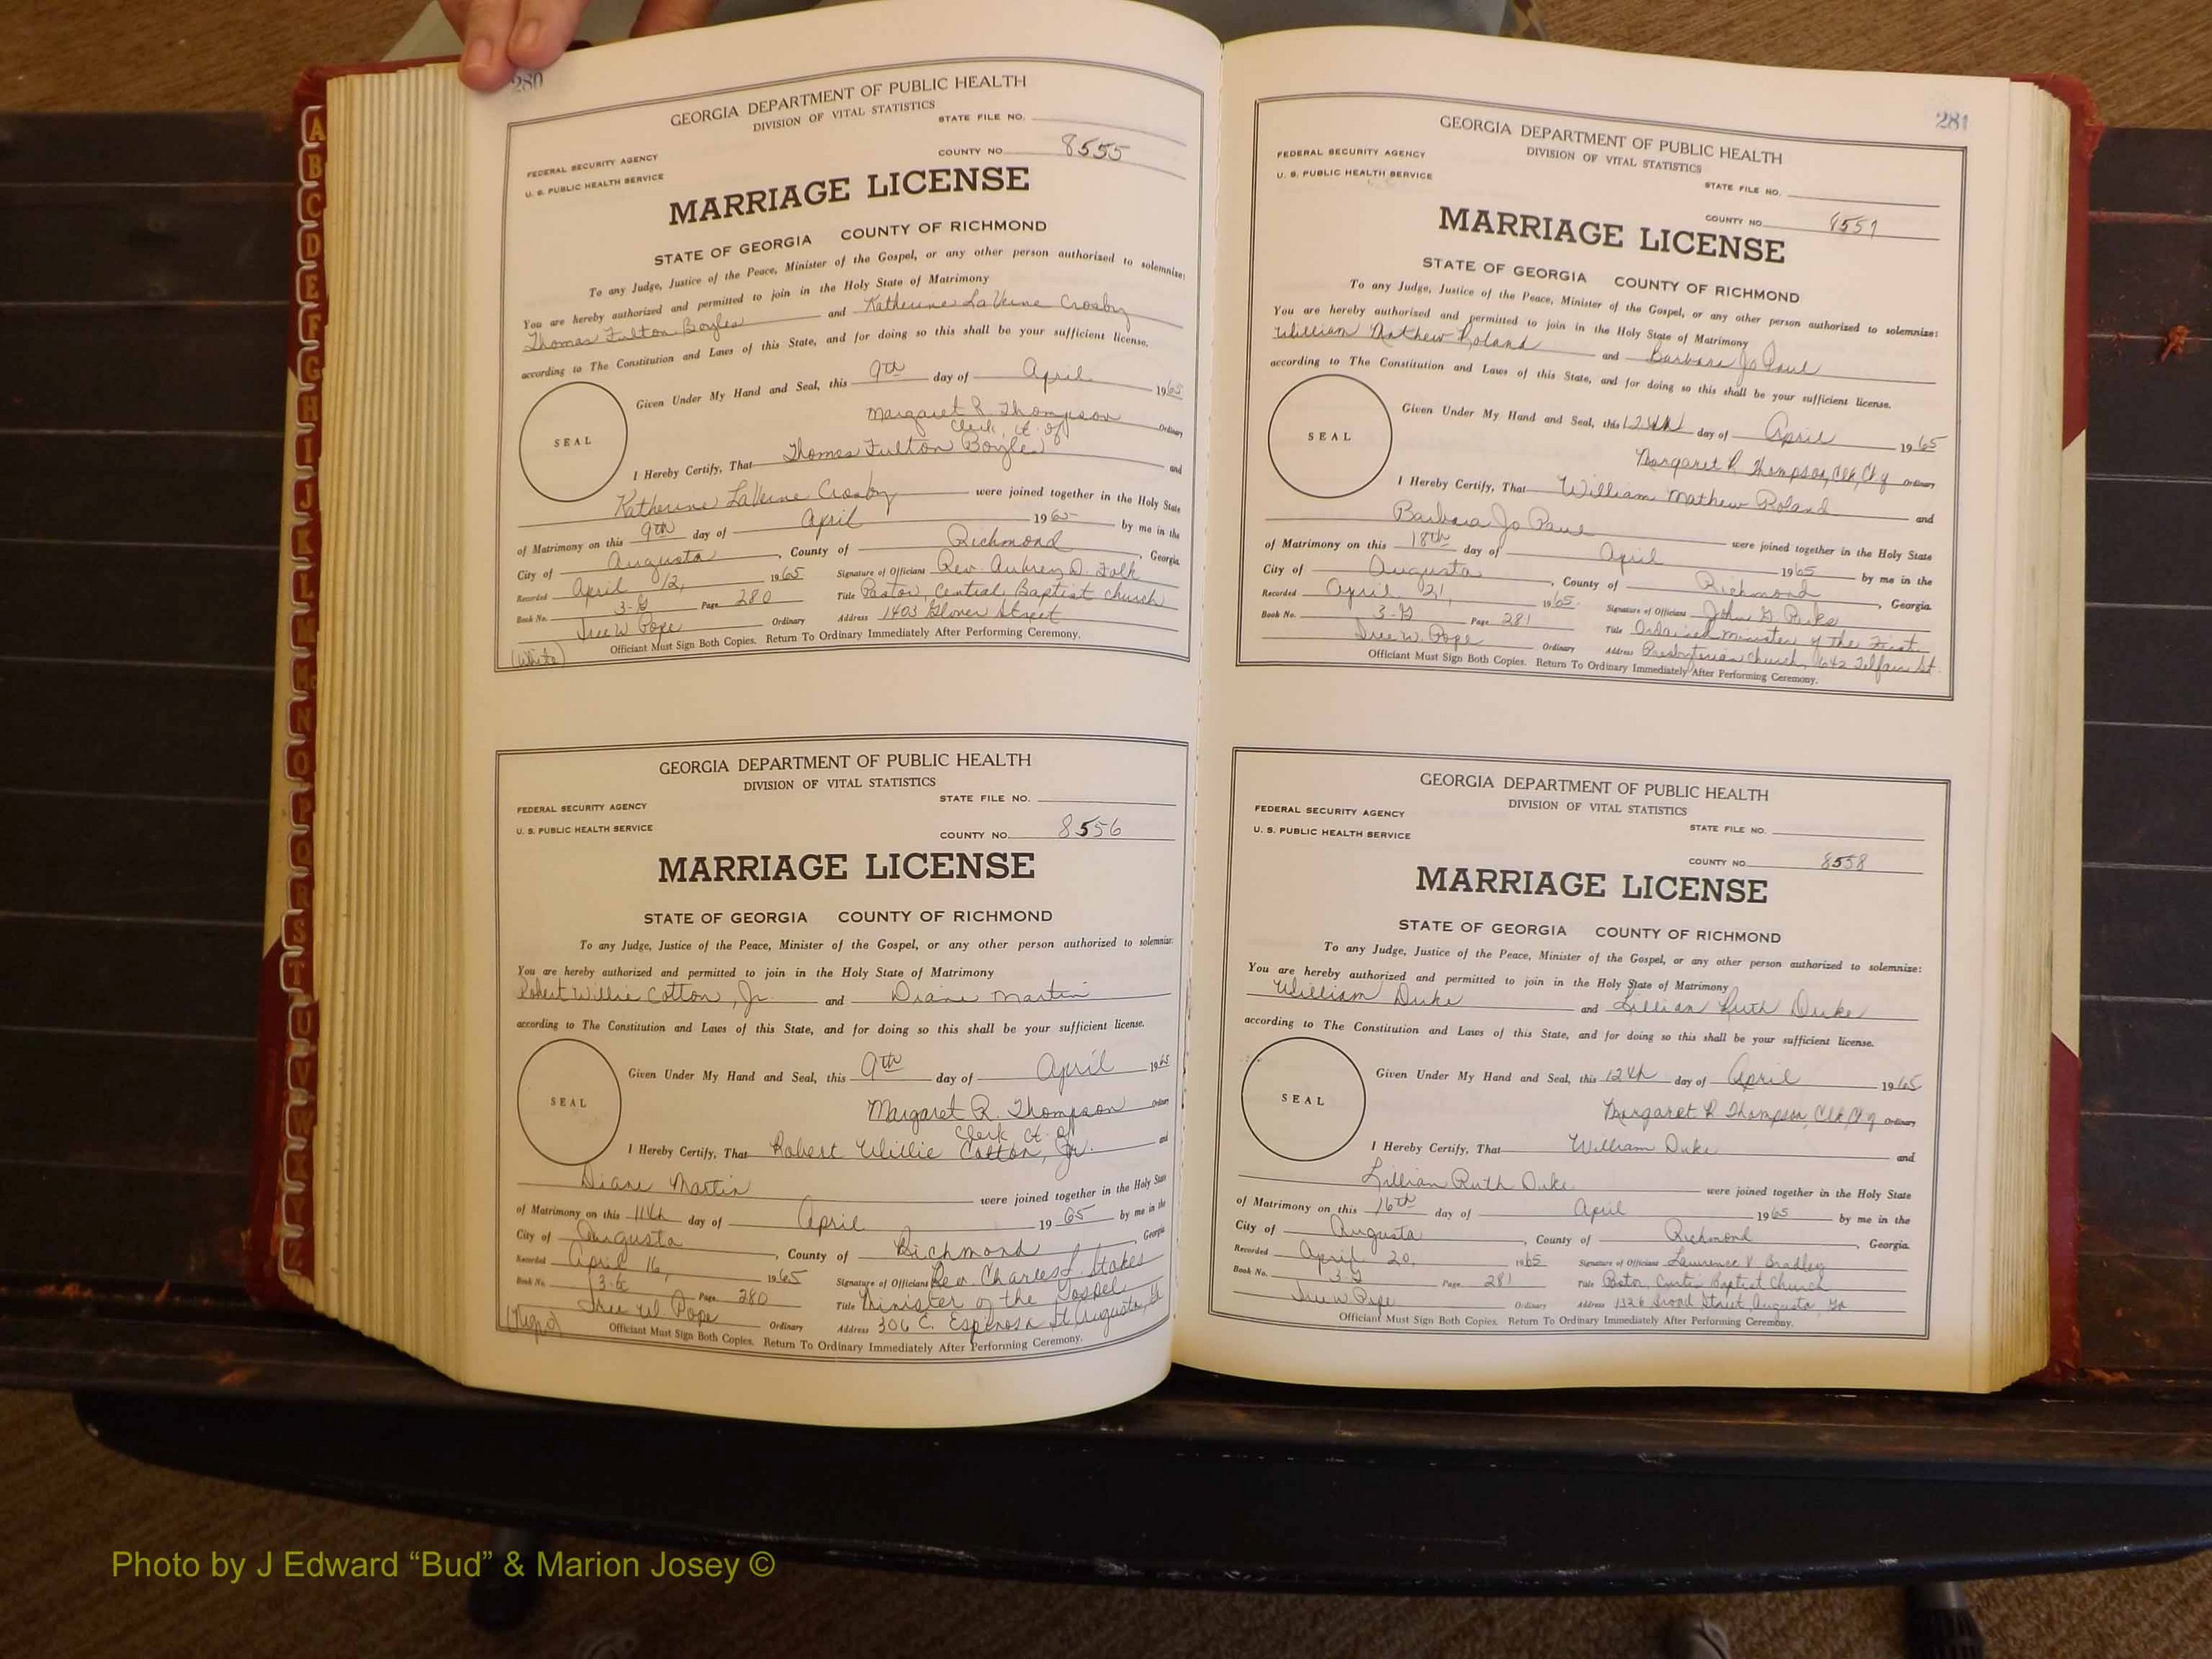 280
GEORGIA DEPARTMENT OF PUBLIC HEALTH
DIVISION OF VITAL STATISTICS
STATE FILE NO.
FEDERAL SECURITY AGENCY
U. S. PUBLIC HEALTH SERVICE
COUNTY NO. 8555
MARRIAGE LICENSE
STATE OF GEORGIA COUNTY OF RICHMOND
To any Judge, Justice of the Peace, Minister of the Gospel, or any other person authorized to solemnize:
You are hereby authorized and permitted to join in the Holy State of Matrimony
Thomas Fulton Boyles and Katherine LaVerne Crosby
according to The Constitution and Laws of this State, and for doing so this shall be your sufficient license.
SEAL
Given Under My Hand and Seal, this 9th day of April 1965
Margaret R. Thompson Ordinary
Clerk, Ct. of
I Hereby Certify, That Thomas Fulton Boyles and
Katherine LaVerne Crosby were joined together in the Holy State
of Matrimony on this 9th day of April 1965 by me in the
City of Augusta, County of Richmond, Georgia.
Recorded April 12, 1965 Signature of Officiant Rev. Aubrey D. Falk
Book No. 3-G Page 280 Title Pastor, Central Baptist Church
Tree W. Pope Ordinary Address 1403 Glover Street
(White) Officiant Must Sign Both Copies. Return To Ordinary Immediately After Performing Ceremony.
GEORGIA DEPARTMENT OF PUBLIC HEALTH
DIVISION OF VITAL STATISTICS
STATE FILE NO.
FEDERAL SECURITY AGENCY
U. S. PUBLIC HEALTH SERVICE
COUNTY NO. 8556
MARRIAGE LICENSE
STATE OF GEORGIA COUNTY OF RICHMOND
To any Judge, Justice of the Peace, Minister of the Gospel, or any other person authorized to solemnize:
You are hereby authorized and permitted to join in the Holy State of Matrimony
Robert Willie Cotton, Jr. and Diane Martin
according to The Constitution and Laws of this State, and for doing so this shall be your sufficient license.
SEAL
Given Under My Hand and Seal, this 9th day of April 1965
Margaret R. Thompson Ordinary
Clerk Ct. of
I Hereby Certify, That Robert Willie Cotton, Jr. and
Diane Martin were joined together in the Holy State
of Matrimony on this 11th day of April 1965 by me in the
City of Augusta, County of Richmond, Georgia
Recorded April 16, 1965 Signature of Officiant Rev. Charles L. Stokes
Book No. 3-G Page 280 Title Minister of the Gospel
Tree W. Pope Ordinary Address 306 E. Espinosa St Augusta, Ga
Officiant Must Sign Both Copies. Return To Ordinary Immediately After Performing Ceremony.
281
GEORGIA DEPARTMENT OF PUBLIC HEALTH
DIVISION OF VITAL STATISTICS
FEDERAL SECURITY AGENCY
U. S. PUBLIC HEALTH SERVICE
STATE FILE NO.
COUNTY NO. 8557
MARRIAGE LICENSE
STATE OF GEORGIA COUNTY OF RICHMOND
To any Judge, Justice of the Peace, Minister of the Gospel, or any other person authorized to solemnize:
You are hereby authorized and permitted to join in the Holy State of Matrimony
William Mathew Roland and Barbara Jo Paul
according to The Constitution and Laws of this State, and for doing so this shall be your sufficient license.
SEAL
Given Under My Hand and Seal, this 12th day of April 1965
Margaret R Thompson, Clk, Ct of Ordinary
I Hereby Certify, That William Mathew Roland and
Barbara Jo Paul were joined together in the Holy State
of Matrimony on this 18th day of April 1965 by me in the
City of Augusta, County of Richmond, Georgia.
Recorded April 21, 1965. Signature of Officiant John G.
Book No. 3-G Page 281 Title Ordained Minister of the First
Tree W. Pope Ordinary Address Presbyterian Church, 642 Telfair St.
Officiant Must Sign Both Copies. Return To Ordinary Immediately After Performing Ceremony.
GEORGIA DEPARTMENT OF PUBLIC HEALTH
DIVISION OF VITAL STATISTICS
FEDERAL SECURITY AGENCY
U. S. PUBLIC HEALTH SERVICE
STATE FILE NO.
COUNTY NO. 8558
MARRIAGE LICENSE
STATE OF GEORGIA COUNTY OF RICHMOND
To any Judge, Justice of the Peace, Minister of the Gospel, or any other person authorized to solemnize:
You are hereby authorized and permitted to join in the Holy State of Matrimony
William Duke and Lillian Ruth Duke
according to The Constitution and Laws of this State, and for doing so this shall be your sufficient license.
SEAL
Given Under My Hand and Seal, this 12th day of April 1965
Margaret R Thompson, Clk Ct of Ordinary
I Hereby Certify, That William Duke and
Lillian Ruth Duke were joined together in the Holy State
of Matrimony on this 16th day of April 1965 by me in the
City of Augusta, County of Richmond, Georgia.
Recorded April 20, 1965 Signature of Officiant Lawrence V. Bradley
Book No. 3-G Page 281 Title Pastor, Curtis Baptist Church
Tree W Pope Ordinary Address 1326 Broad Street, Augusta, Ga
Officiant Must Sign Both Copies. Return To Ordinary Immediately After Performing Ceremony.
A
B
C
D
E
F
G
H
I
J
K
L
M
Mc
N
O
P
Q
R
S
T
U
V
W
X
Y
Z
Photo by J Edward “Bud” & Marion Josey ©